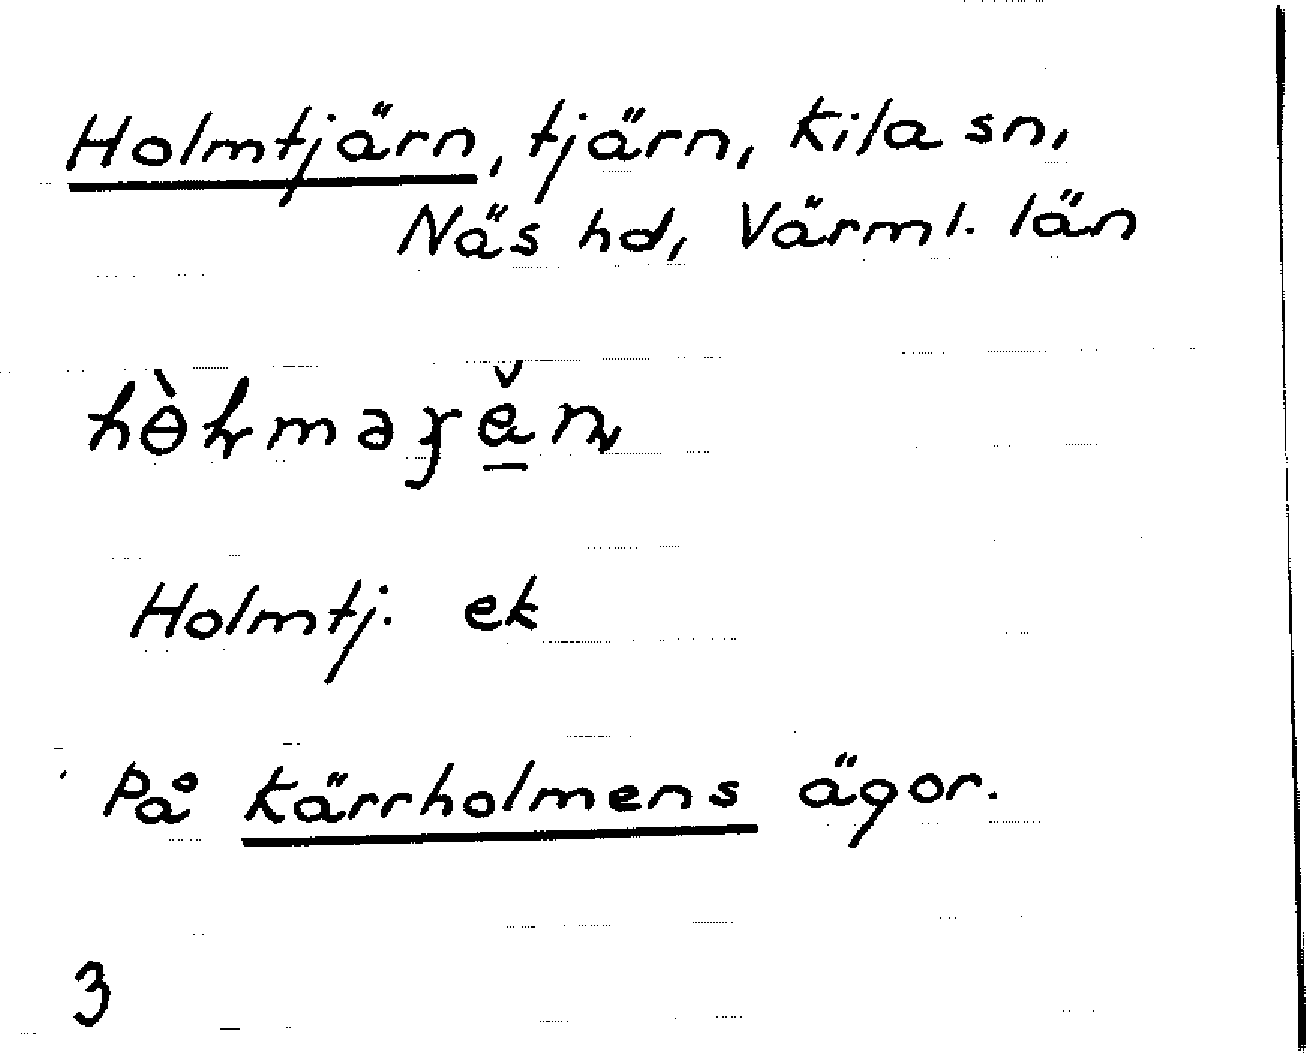 Holmtjärn, tjärn, Kila sn,
Näs hd, Värml. län
Holmtj. ek
På Kärrholmens ägor.
3